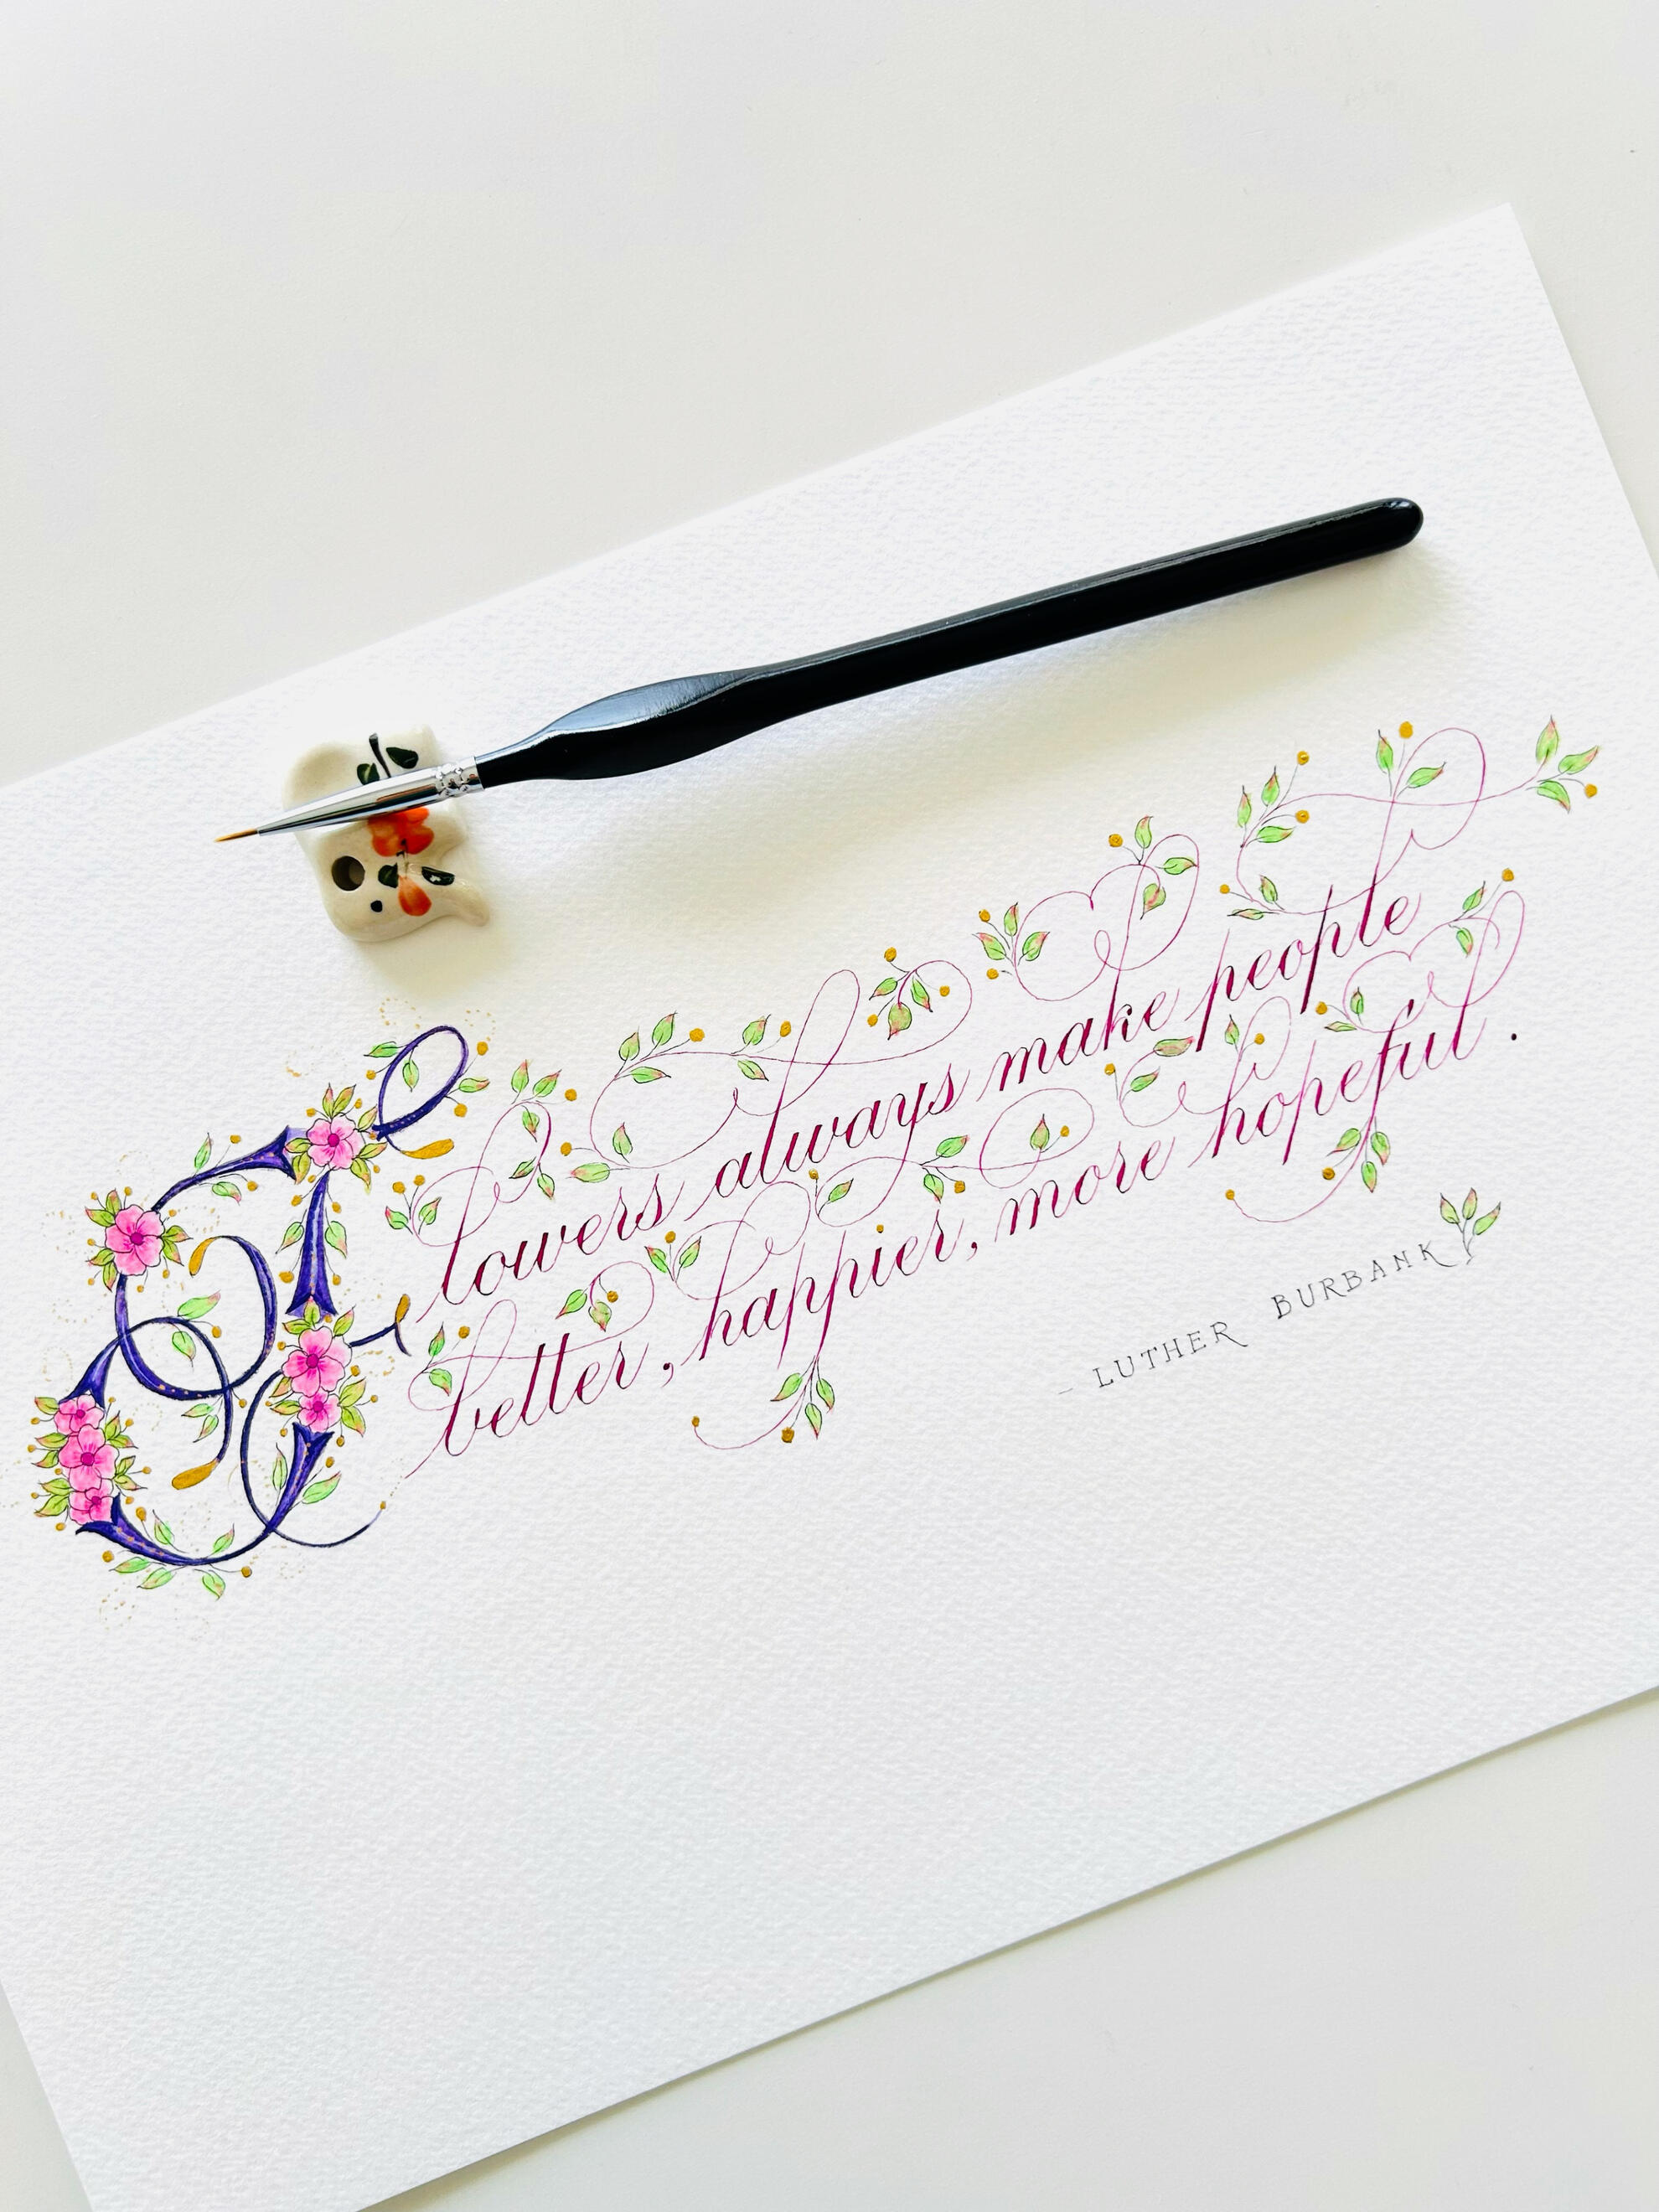 Flowers always make people
better, happier, more hopeful.
- LUTHER BURBANK